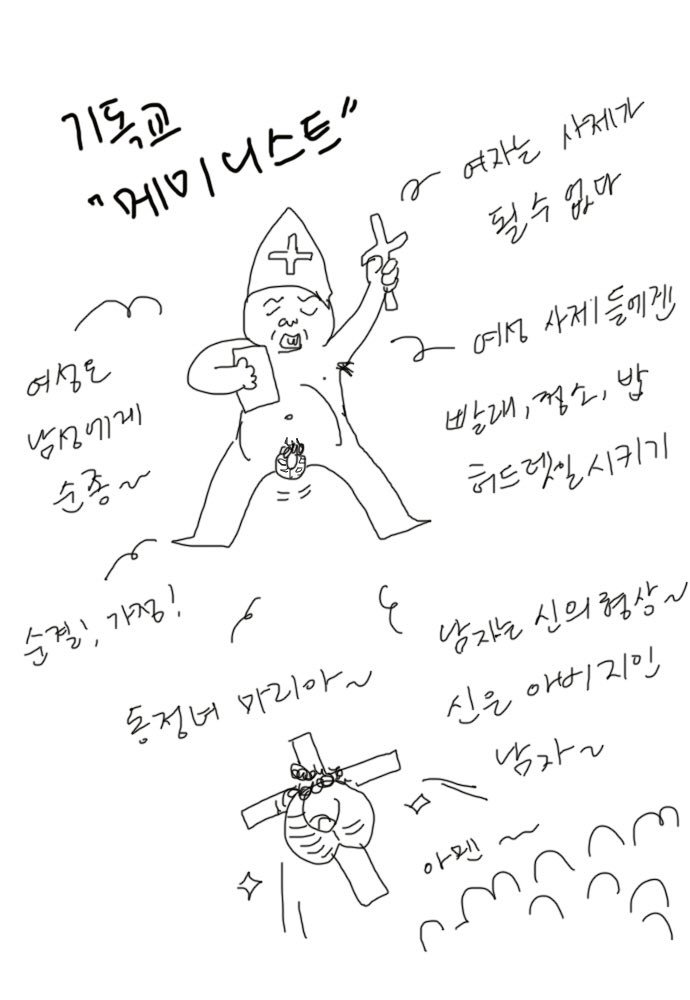 기독교
"메미니스트"
여자는 사제가
될 수 없다
여성은
남성에게
순종~
여성 사제들에겐
빨래, 청소, 밥
허드렛일 시키기
순결!, 가정!
동정녀 마리아~
남자는 신의 형상~
신은 아버지인
남자~
아멘~